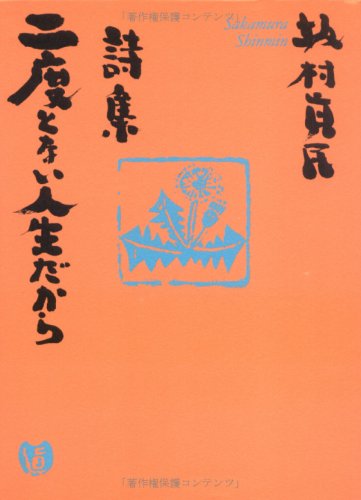 「著作権保護コンテンツ」
坂村真民
Sakamura
Shinmin
詩集
二度とない人生だから
「著作権保護コンテンツ」